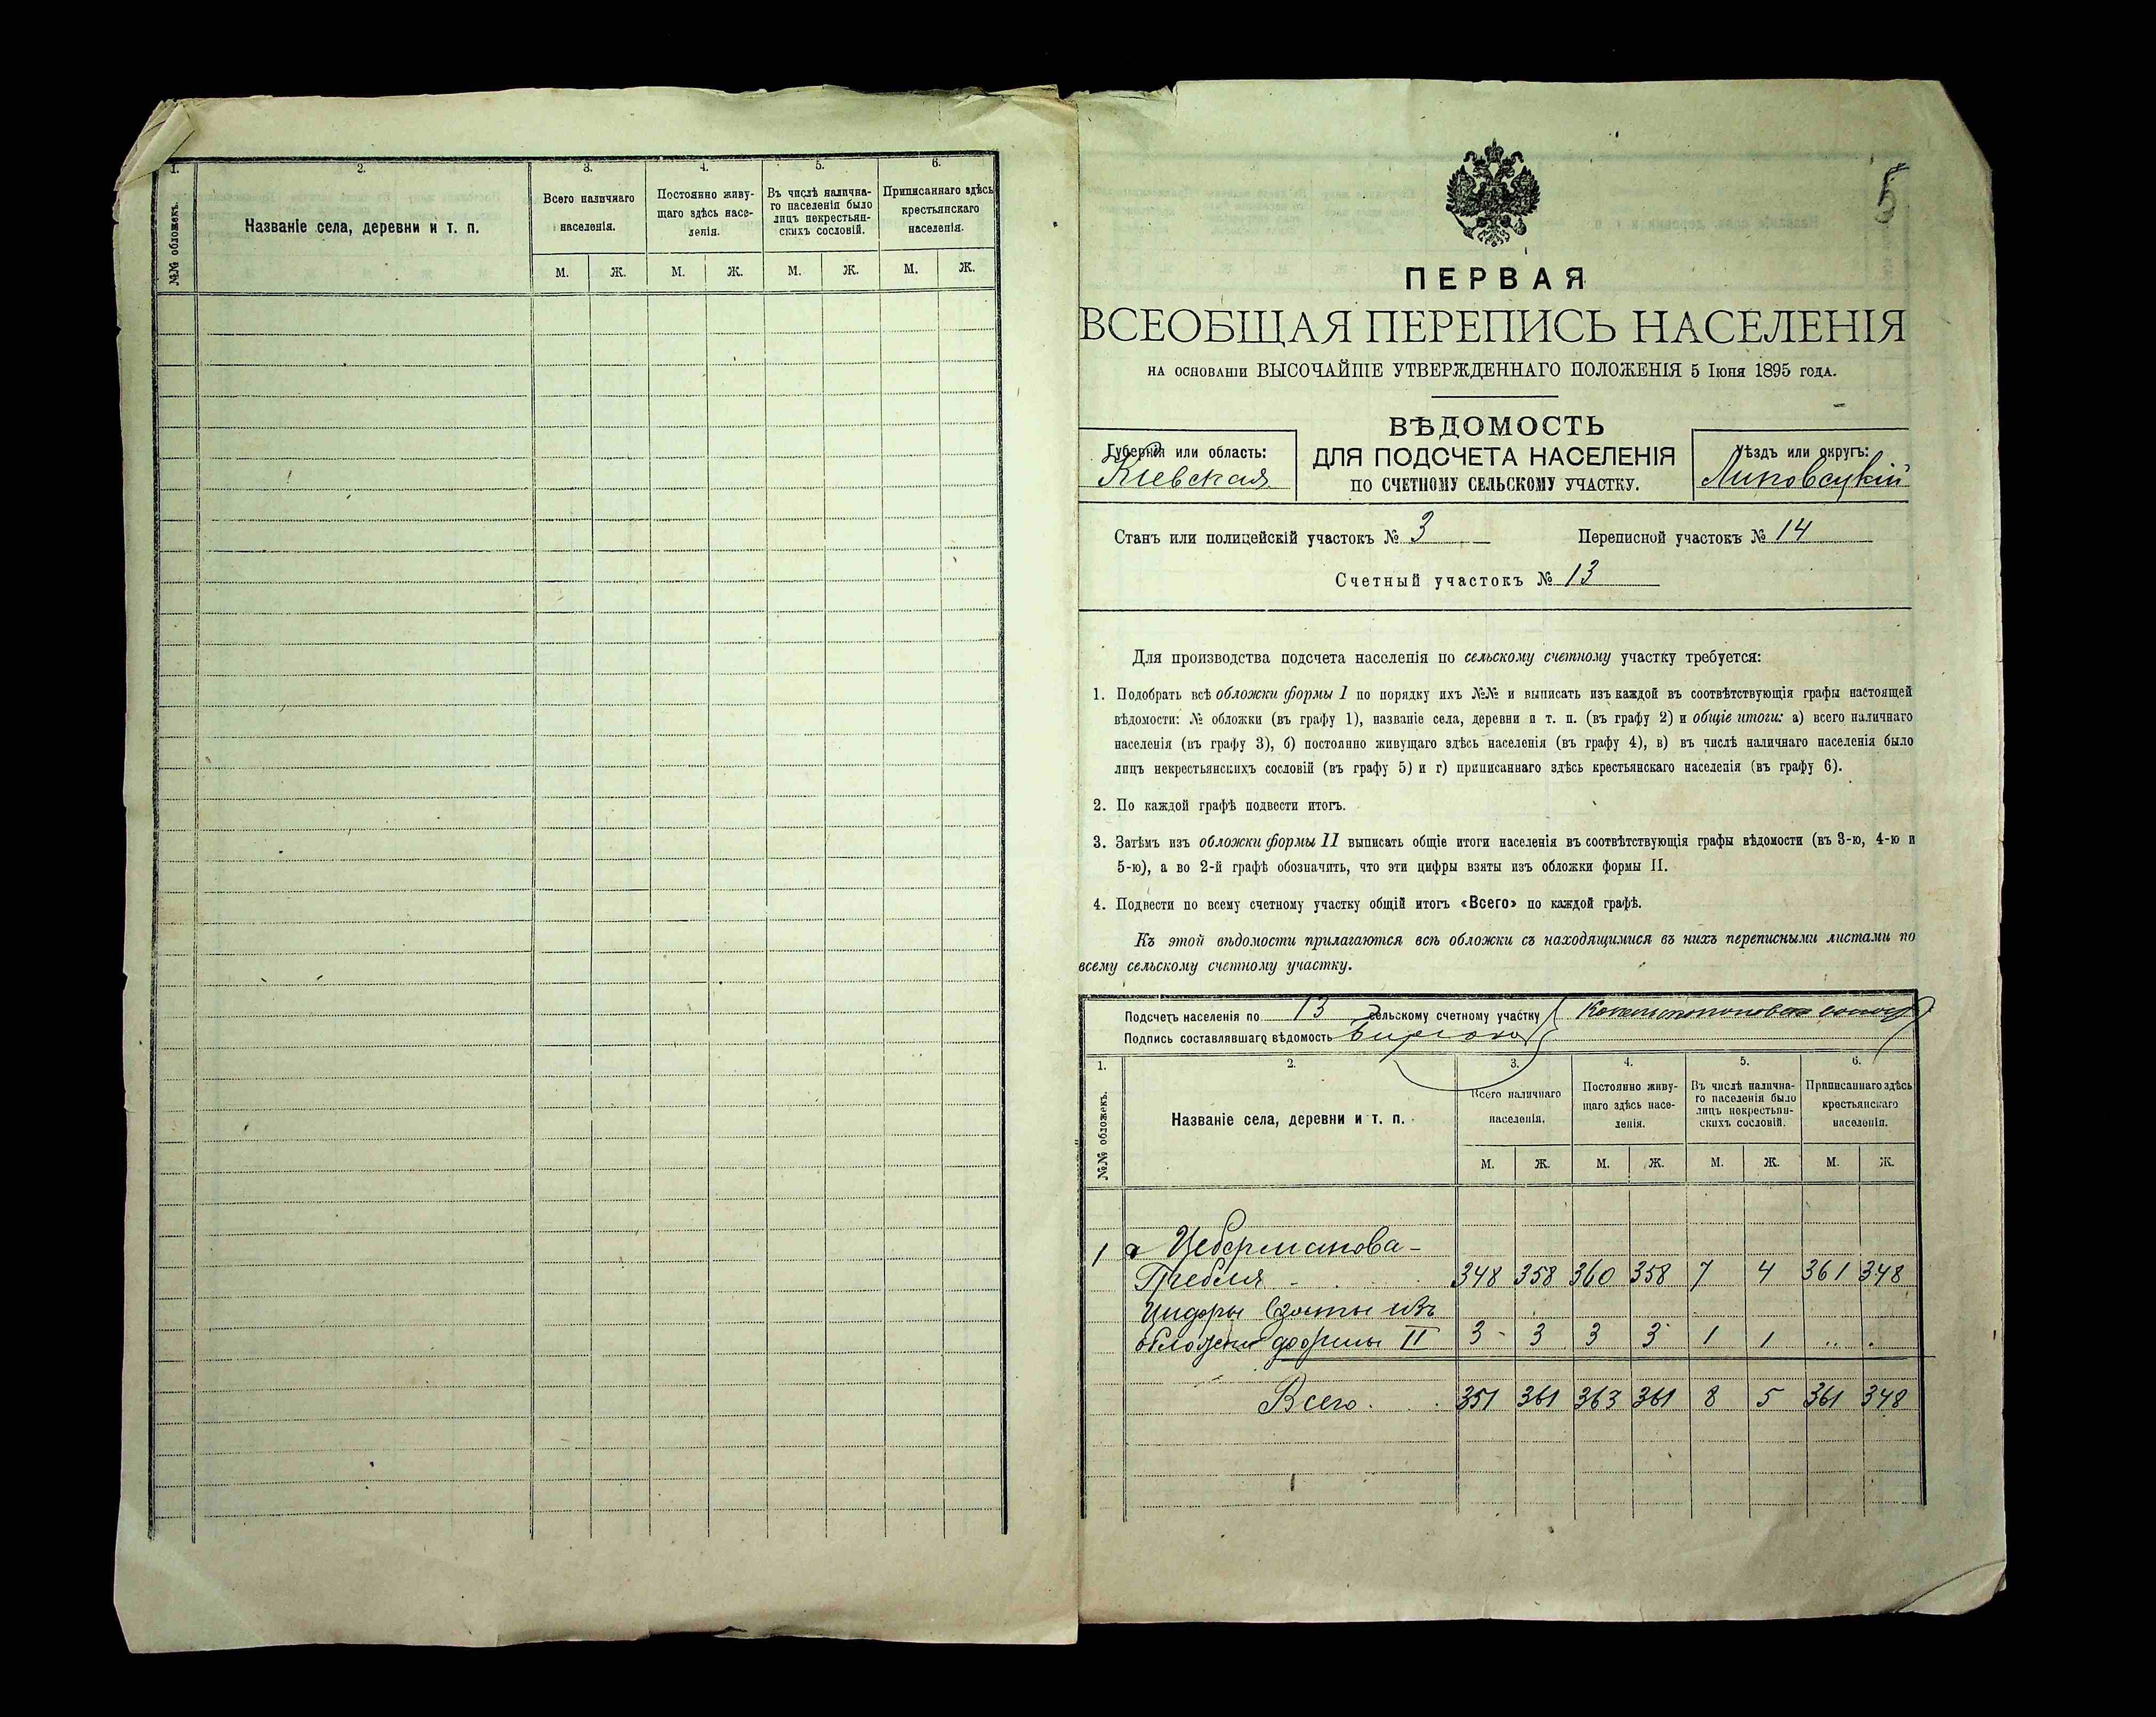 1.
2.
3.
4.
5.
6.
№№ обложекъ.
Названіе села, деревни и т. п.
Всего наличнаго
населенія.
Постоянно живу-
щаго здѣсь насе-
ленія.
Въ числѣ налична-
го населенія было
лицъ некрестьян-
скихъ сословій.
Приписаннаго здѣсь
крестьянскаго
населенія.
М. Ж. М. Ж. М. Ж. М. Ж.
5
ПЕРВАЯ
ВСЕОБЩАЯ ПЕРЕПИСЬ НАСЕЛЕНІЯ
НА ОСНОВАНІИ ВЫСОЧАЙШЕ УТВЕРЖДЕННАГО ПОЛОЖЕНІЯ 5 Іюня 1895 ГОДА.
ВѢДОМОСТЬ
ДЛЯ ПОДСЧЕТА НАСЕЛЕНІЯ
ПО СЧЕТНОМУ СЕЛЬСКОМУ УЧАСТКУ.
Губернія или область:
Кіевская
Уѣздъ или округъ:
Липовецкій
Станъ или полицейскій участокъ № 3 Переписной участокъ № 14
Счетный участокъ № 13
Для производства подсчета населенія по сельскому счетному участку требуется:
1. Подобрать всѣ обложки формы I по порядку ихъ №№ и выписать изъ каждой въ соотвѣтствующія графы настоящей
вѣдомости: № обложки (въ графу 1), названіе села, деревни и т. п. (въ графу 2) и общіе итоги: а) всего наличнаго
населенія (въ графу 3), б) постоянно живущаго здѣсь населенія (въ графу 4), в) въ числѣ наличнаго населенія было
лицъ некрестьянскихъ сословій (въ графу 5) и г) приписаннаго здѣсь крестьянскаго населенія (въ графу 6).
2. По каждой графѣ подвести итогъ.
3. Затѣмъ изъ обложки формы II выписать общіе итоги населенія въ соотвѣтствующія графы вѣдомости (въ 3-ю, 4-ю и
5-ю), а во 2-й графѣ обозначить, что эти цифры взяты изъ обложки формы II.
4. Подвести по всему счетному участку общій итогъ «Всего» по каждой графѣ.
Къ этой вѣдомости прилагаются всѣ обложки съ находящимися въ нихъ переписными листами по
всему сельскому счетному участку.
Подсчетъ населенія по 13 сельскому счетному участку
Подпись составлявшаго вѣдомость
1.
2.
3.
4.
5.
6.
№№ обложекъ.
Названіе села, деревни и т. п.
Всего наличнаго
населенія.
Постоянно живу-
щаго здѣсь насе-
ленія.
Въ числѣ налична-
го населенія было
лицъ некрестьян-
скихъ сословій.
Приписаннаго здѣсь
крестьянскаго
населенія.
М. Ж. М. Ж. М. Ж. М. Ж.
1 Цеберманова-
Гребля 348 358 360 358 7 4 361 348
Цифры взяты изъ
обложки формы II 3 3 3 3 1 1
Всего 351 361 363 361 8 5 361 348